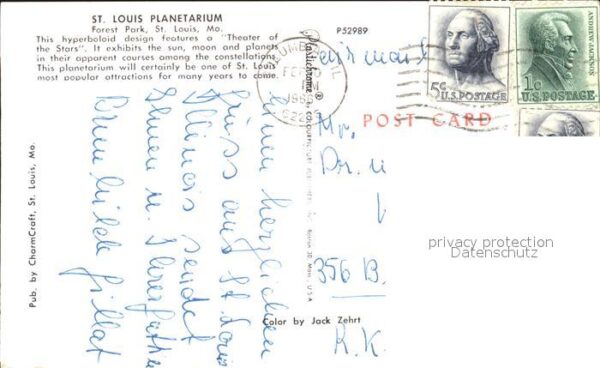 ST. LOUIS PLANETARIUM
Forest Park, St. Louis, Mo.
This hyperboloid design features a "Theater of
the Stars". It exhibits the sun, moon and planets
in their apparent courses among the constellations.
This planetarium will certainly be one of St. Louis'
most popular attractions for many years to come.
P52989
air mail
5¢
U.S. POSTAGE
ANDREW JACKSON
1¢
U.S. POSTAGE
POST CARD
Pub. by CharmCraft, St. Louis, Mo.
Plastichrome®
einen herzlichen
Gruss aus St. Louis
Illinois sendet
Ihnen u. Ihrer
Brunhilde
Mr.
Dr. u
356 B.
R.K.
Color by Jack Zehrt
privacy protection
Datenschutz